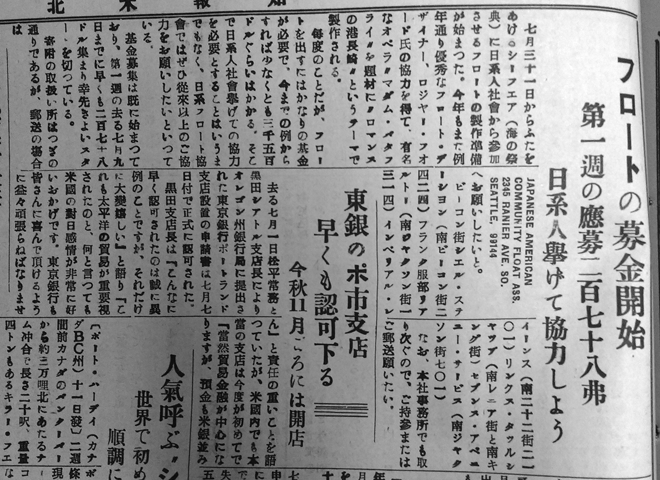 北米報知
フロートの募金開始
第一週の應募二百七十八弗
日系人擧げて協力しよう
七月三十一日からふたを
あけるシーフェア(海の祭
典)に日系人社會から参加
させるフロートの製作準備
が始まつた。今年もまた例
年通り優秀なフロート・デ
ザイナー、ロジャー・フオ
ード氏の協力を得て、有名
なオペラ〝マダム・バタフ
ライ〟を題材に〝ロマンス
の港長崎〟というテーマで
製作される。
毎度のことだが、フロー
トを出すにはかなりの基金
が必要で、今までの例から
すればゆなくとも三千五百
ドルぐらいはかかる。そこ
で日系人社會擧げての協力
を必要とすることはいうま
でもなく、日系フロート協
會ではぜひ從來以上のご協
力をお願いしたいといつて
いる。
基金募集は既に始まつて
おり、第一週の去る七月九
日までに早くも二百七十八
ドル集まり幸先きよいスタ
ートを切つている。
寄附の取扱い所はつぎの
通りであるが、郵送の場合
は
JAPANESE AMERICAN
COMMUNITY FLOAT ASS.
2345 RANIER AVE. SO.
SEATTLE, 99144
へお願いしたいと。
ビーコン街シェル・ステ
ーション(南ビーコン街二
四二四)フランク服部リア
ルトー(南ジャクソン街一
三一四)インペリアル・レ
イーンス(南二十二街二一
〇一)リンクス・タツルシ
ャップ(南レニア街と南キ
ング街)ジャブンス・アベニ
ュー・サービス(南ジャク
ソン街七〇一)
なお、本社事務所でも取
り次ぐので、ご持參または
ご郵送願いたい。
東銀のポ市支店
早くも認可下る
今秋11月ごろには開店
去る七月一日松平常務と
黒田シアトル支店長により
オレゴン州銀行局に提出さ
れた東京銀行ポートランド
支店設置の申請書は七月七
日付で正式に認可された。
黒田支店長は「こんなに
早く認可されたのは誠に異
例のことですが、それだけ
に大變嬉しい」と語り「こ
れも太平洋の貿易が重要視
されたのと、何と言つても
米國の對日感情が非常に好
いおかげです。東京銀行も
皆さんに喜んで頂けるよう
に益々頑張らねばなりませ
ん」と責任の重いことを語
つていたが、米國内でも本
當の支店は今度が初めてで
「當然貿易金融が中心にな
りますが、預金も米銀並み
人氣呼ぶ〝シ
世界で初め
順調に
〔ポート・ハーデイ(カナ
ダBC州)十一日發〕二週
間前カナダのバンクーバー
から約三万哩北にあたるナー
ム冲合で長さ二十呎、重量
四トンもあるキラー・フエ